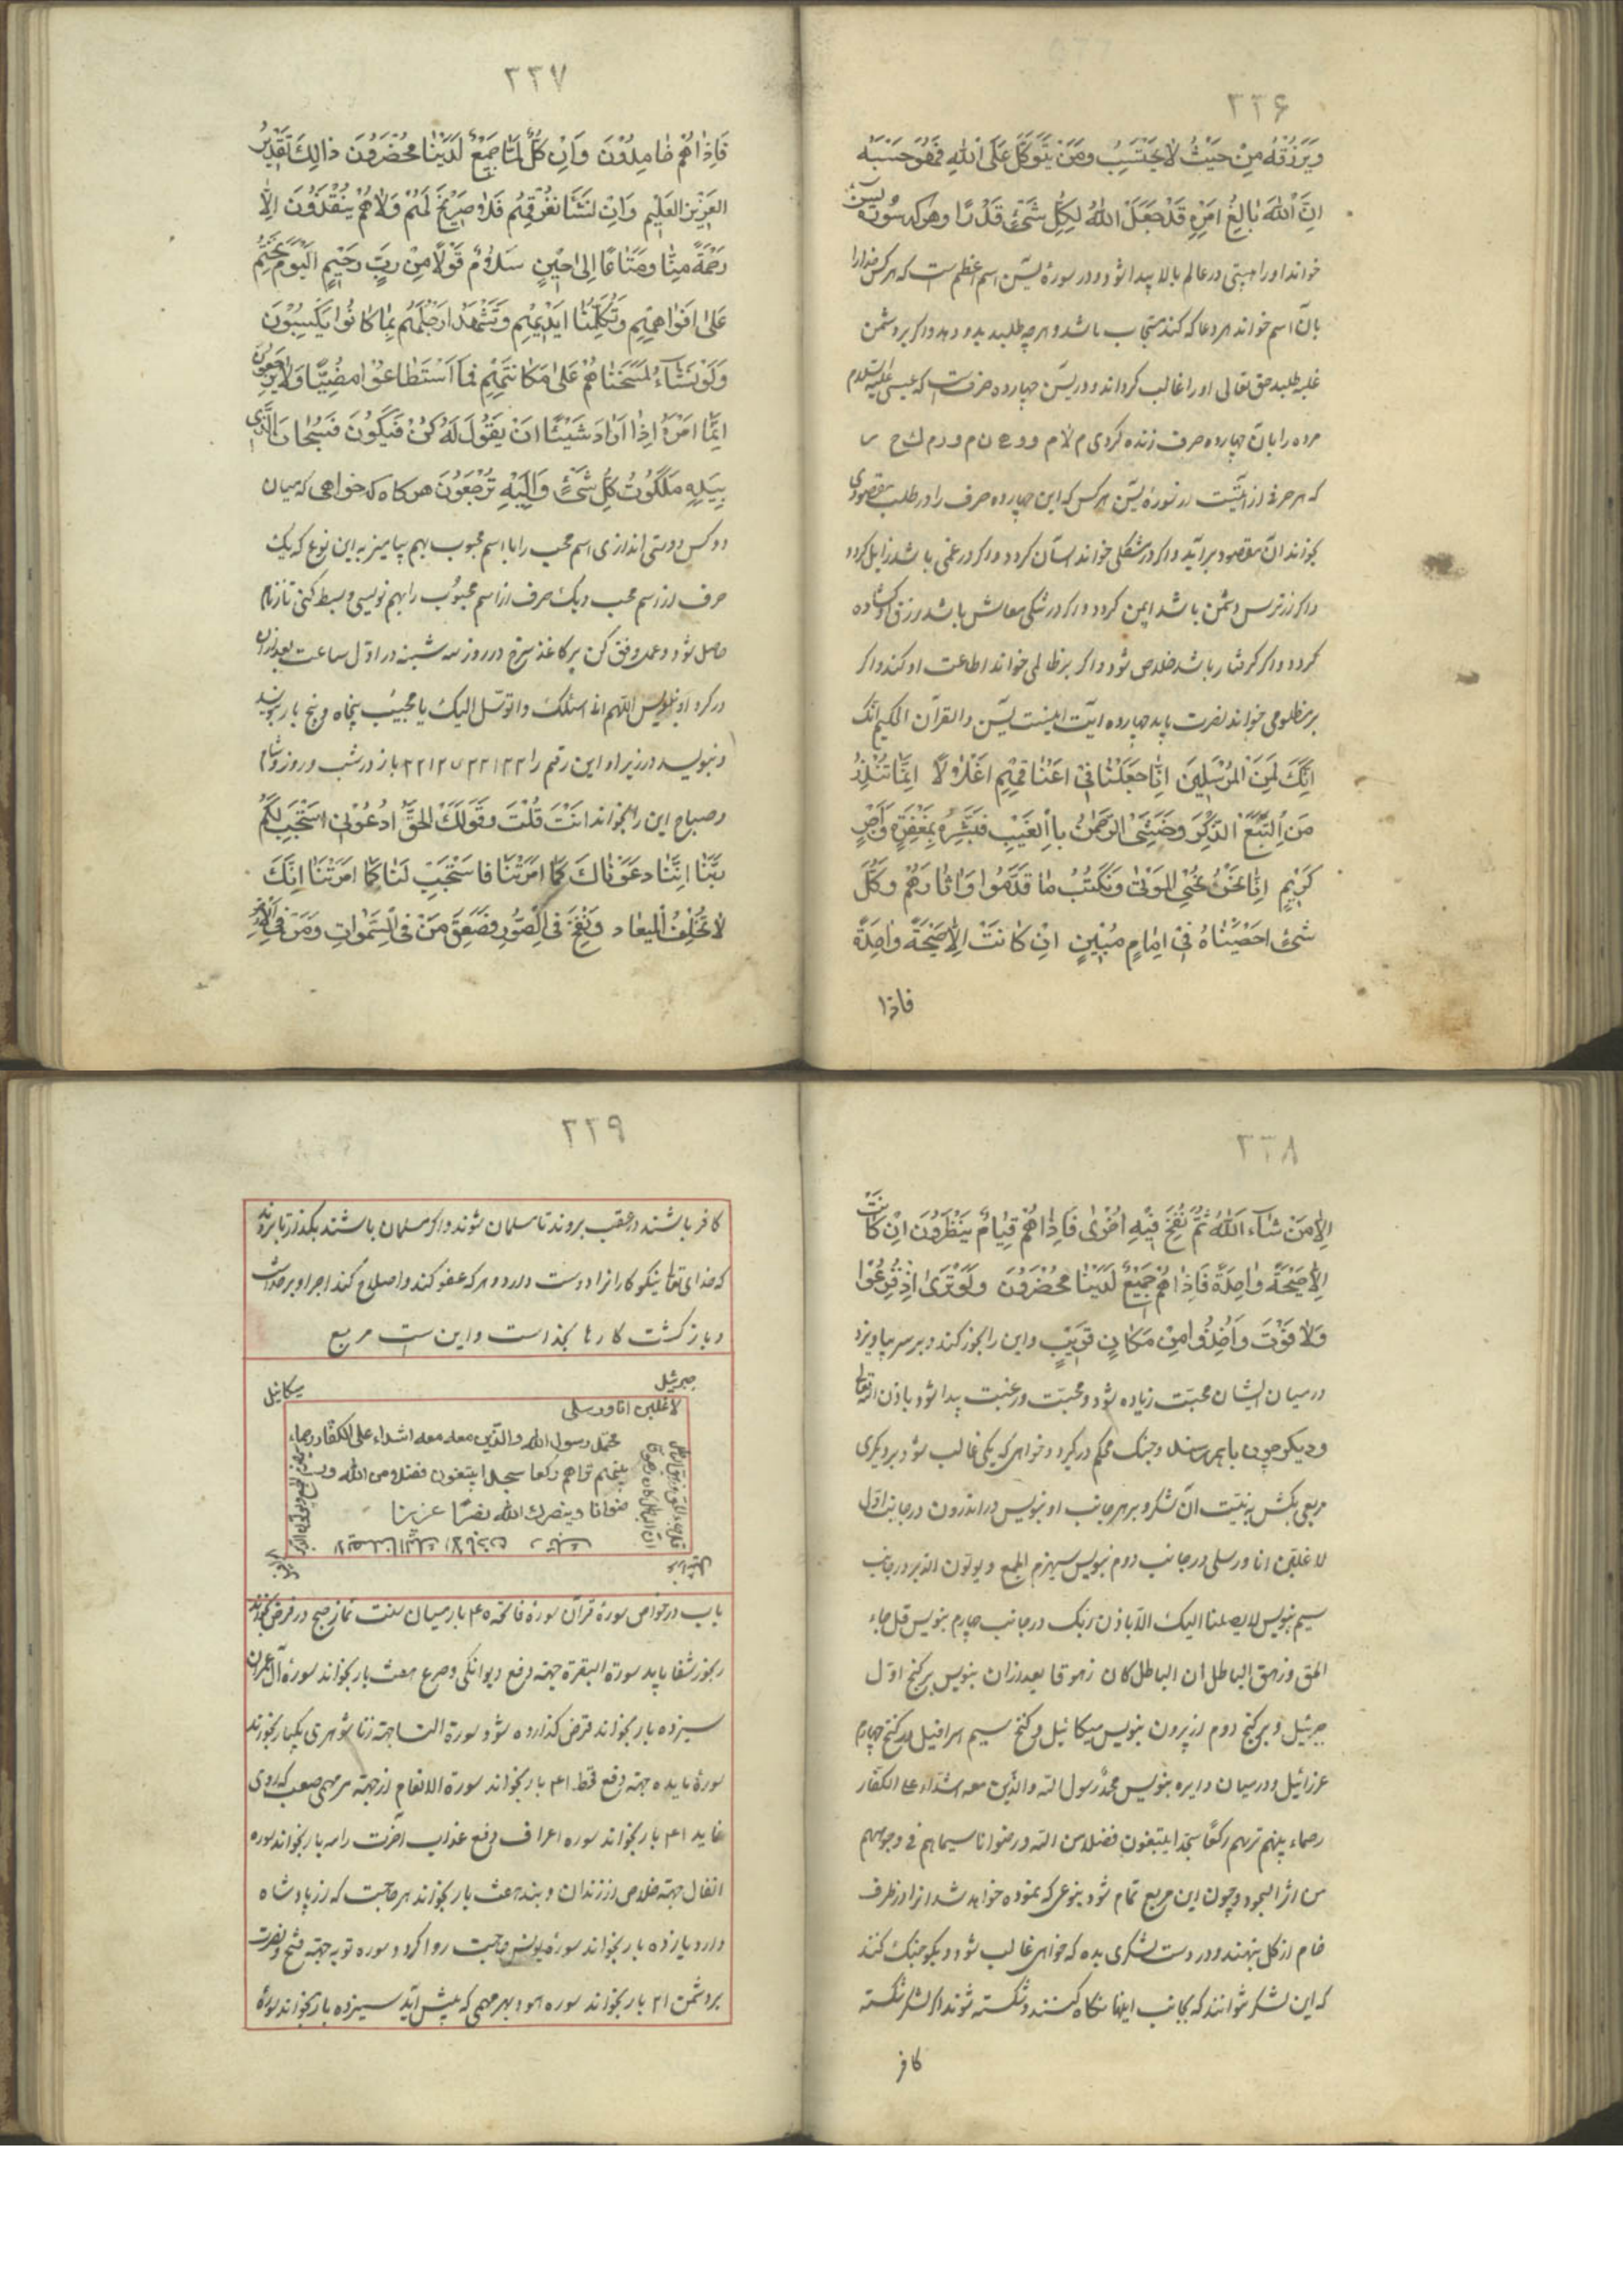 ٢٢۶
ویَرْزُقْهُ مِنْ حَیْثُ لا یَحْتَسِبُ ومَنْ یَتَوَکَّلْ عَلَی اللّهِ فَهُوَ حَسْبُهُ
اِنَّ اللّهَ بالِغُ اَمْرِهِ قَدْ جَعَلَ اللّهُ لِکُلِّ شَیْئٍ قَدْرًا وهر که سوره یس
خواند او را هیبتی در عالم بالا پیدا شود و در سورهٔ یس اسم اعظم است که هر کس خدا را
بآن اسم خواند هر دعا که کند مستجاب باشد و هر چه طلبد بدو دهد و اگر بر دشمن
غلبه طلبد حق تعالی او را غالب گرداند و در یس چهارده حرفست که عیسی علیه السلام
مرده را بآن چهارده حرف زنده کردی م لا م و و ع ن م و ر م ك ح س
که هر حرفی از آیتیست از سورهٔ یس هر کس که این چهارده حرف را در طلب مقصودی
بخواند آن مقصود برآید و اگر در مشکلی خواند آسان گردد و اگر در غمی باشد زایل گردد
و اگر از ترس دشمن باشد ایمن گردد و اگر در تنگی معاش باشد رزق او گشاده
گردد و اگر گرفتار باشد خلاص شود و اگر بر ظالمی خواند اطاعت او کند و اگر
بر مظلومی خواند نصرت یابد چهارده آیت اینست یس والقرآن الحکیم انک
اِنَّكَ لَمِنَ المُرْسَلِینَ اِنّا جَعَلْنا فی اَعْناقِهِم اَغْلالًا اِنَّما تُنْذِرُ
مَنِ اتَّبَعَ الذِّکْرَ وخَشِیَ الرَّحْمنَ بِالْغَیْبِ فَبَشِّرْهُ بِمَغْفِرَةٍ وَاَجْرٍ
کَرِیمٍ اِنّا نَحْنُ نُحْیِ المَوْتی وَنَکْتُبُ ما قَدَّمُوا وَاثارَهُمْ وَکُلَّ
شَیْئٍ احصَیْناهُ فی اِمامٍ مُبِینٍ اِنْ کانَتْ اِلّا صَیْحَةً واحِدَةً
فاذا
٢٢٧
فَاِذا هُمْ خامِدُونَ وَاِنْ کُلٌّ لَمّا جَمیعٌ لَدَیْنا مُحْضَرُونَ ذالِكَ تَقْدِیرُ
العَزِیزِ العَلِیمِ وَاِنْ نَشَأْ نُغْرِقْهُمْ فَلا صَرِیخَ لَهُمْ وَلا هُمْ یُنْقَذُونَ اِلّا
رَحْمَةً مِنّا ومَتاعًا اِلی حِینٍ سَلامٌ قَوْلًا مِنْ رَبٍّ رَحِیمٍ اَلْیَوْمَ نَخْتِمُ
عَلی اَفْواهِهِمْ وَتُکَلِّمُنا اَیْدِیهِمْ وَتَشْهَدُ اَرْجُلُهُمْ بِما کانُوا یَکْسِبُونَ
وَلَوْ نَشآءُ لَمَسَخْناهُمْ عَلی مَکانَتِهِمْ فَمَا اسْتَطاعُوا مُضِیًّا وَلا یَرْجِعُونَ
اِنَّما اَمْرُهُ اِذا اَرادَ شَیْئًا اَنْ یَقُولَ لَهُ کُنْ فَیَکُونُ فَسُبْحانَ الَّذِی
بِیَدِهِ مَلَکُوتُ کُلِّ شَیْئٍ وَاِلَیْهِ تُرْجَعُونَ هر کاه که خواهی که میان
دو کس دوستی اندازی اسم محب را با اسم محبوب بهم بیامیز به این نوع که یک
حرف از اسم محب و یک حرف از اسم محبوب را بهم نویسی و بسط کنی تا زمام
حاصل شود وعمل وفق کن بر کاغذ سرخ در روز سه شنبه در اول ساعت بعد ازان
در کرد او بنویس اللهم انی اسئلک واتوسل الیک یا مجیب پنجاه و پنج بار بنویسد
و بنویسد در زیر او این رقم را باز در شب و روز و شام
و صباح این را بخواند اَنْتَ قُلْتَ وَقَوْلُكَ الحَقُّ اُدْعُونِی اَسْتَجِبْ لَکُمْ
رَبَّنا اِنَّنا دَعَوْناكَ کَما اَمَرْتَنا فَاسْتَجِبْ لَنا کَما اَمَرْتَنا اِنَّكَ
لا تُخْلِفُ المِیعاد وَنُفِخَ فِی الصُّورِ فَصَعِقَ مَنْ فِی السَّمواتِ وَمَنْ فِی الاَرْضِ
٢٢٨
اِلّا مَنْ شآءَ اللّهُ ثُمَّ نُفِخَ فِیهِ اُخْری فَاِذا هُمْ قِیامٌ یَنْظُرُونَ اِنْ کانَتْ
اِلّا صَیْحَةً واحِدَةً فَاِذا هُمْ جَمِیعٌ لَدَیْنا مُحْضَرُونَ وَلَوْ تَری اِذْ فُزِعُوا
فَلا فَوْتَ وَاُخِذُوا مِنْ مَکانٍ قَرِیبٍ و این را بخور کند و بر سر پا ویزد
در میان ایشان محبت زیاده شود و محبت و رغبت پیدا شود باذن الله تعالی
و دیکر چون با هم رسند و جنگ محکم در گیرد و خواهی که یکی غالب شود بر دیکری
مربعی بکش به نیت آن لشکر و بر هر جانب او بنویس در اندرون در جانب اول
لاغلبن انا ورسلی در جانب دوم بنویس سیهزم الجمع ویولون الدبر در جانب
سیم بنویس لا یصلنا الیک الا باذن ربک در جانب چهارم بنویس قل جاء
الحق وزهق الباطل ان الباطل کان زهوقا بعد ازان بنویس بر کنج اول
جبرئیل و بر کنج دوم از بیرون بنویس میکائیل و کنج سیم اسرافیل و بر کنج چهارم
عزرائیل و در میان دایره بنویس محمد رسول الله والذین معه اشداء علی الکفار
رحماء بینهم تریهم رکعا سجدا یبتغون فضلا من الله ورضوانا سیماهم فی وجوههم
من اثر السجود و چون این مربع تمام شود بنوعی که نموده خواهد شد انرا در ظرف
خام از کل بنهند و در دست لشکری بده که خواهی غالب شود و بگو جنگ کنند
که این لشکر نتوانند که بجانب اینها نگاه کنند و شکسته شوند و اگر لشکر شکسته
کافر
٢٢٩
کافر باشند در عقب بروند تا مسلمان شوند و اگر مسلمان باشند بگذارند تا بروند
که خدای تعالی نیکوکارانرا دوست دارد و هر که عفو کند واصلاح کند اجر او بر خداست
و بازگشت کارها بخداست و این ست مربع
جبرئیل
میکائیل
لاغلبن انا ورسلی
محمد رسول الله والذین معه معه اشداء علی الکفار رحماء
بینهم تراهم رکعا سجدا یبتغون فضلا من الله ور
ضوانا وینصرك الله نصرًا عزیزا
باب در خواص سورهٔ قرآن سورهٔ فاتحه ۴۵ بار میان سنت نماز صبح و فرض بخواند
رنجور شفا یابد سورة البقرة جهة دفع دیوانگی و صرع هفت بار بخواند سورهٔ آل عمران
سیزده بار بخواند قرض کذارده شود سورة النسا جهة زنا شوهری یکبار بخواند
سورهٔ مایده جهة دفع قحط ۴۱ بار بخواند سورة الانعام از جهة هر مهمی صعب که روی
نماید ۴۱ بار بخواند سوره اعراف دفع عذاب آخرت را سه بار بخواند سوره
انفال جهة خلاص از زندان و بند هفت بار بخواند هر حاجت که از پادشاه
دارد یازده بار بخواند سوره یونس حاجت روا کردد سوره توبه جهة فتح و نصرت
بر دشمن ۲۱ بار بخواند سوره هود بهر مهمی که پیش آید سیزده بار بخواند سورهٔ